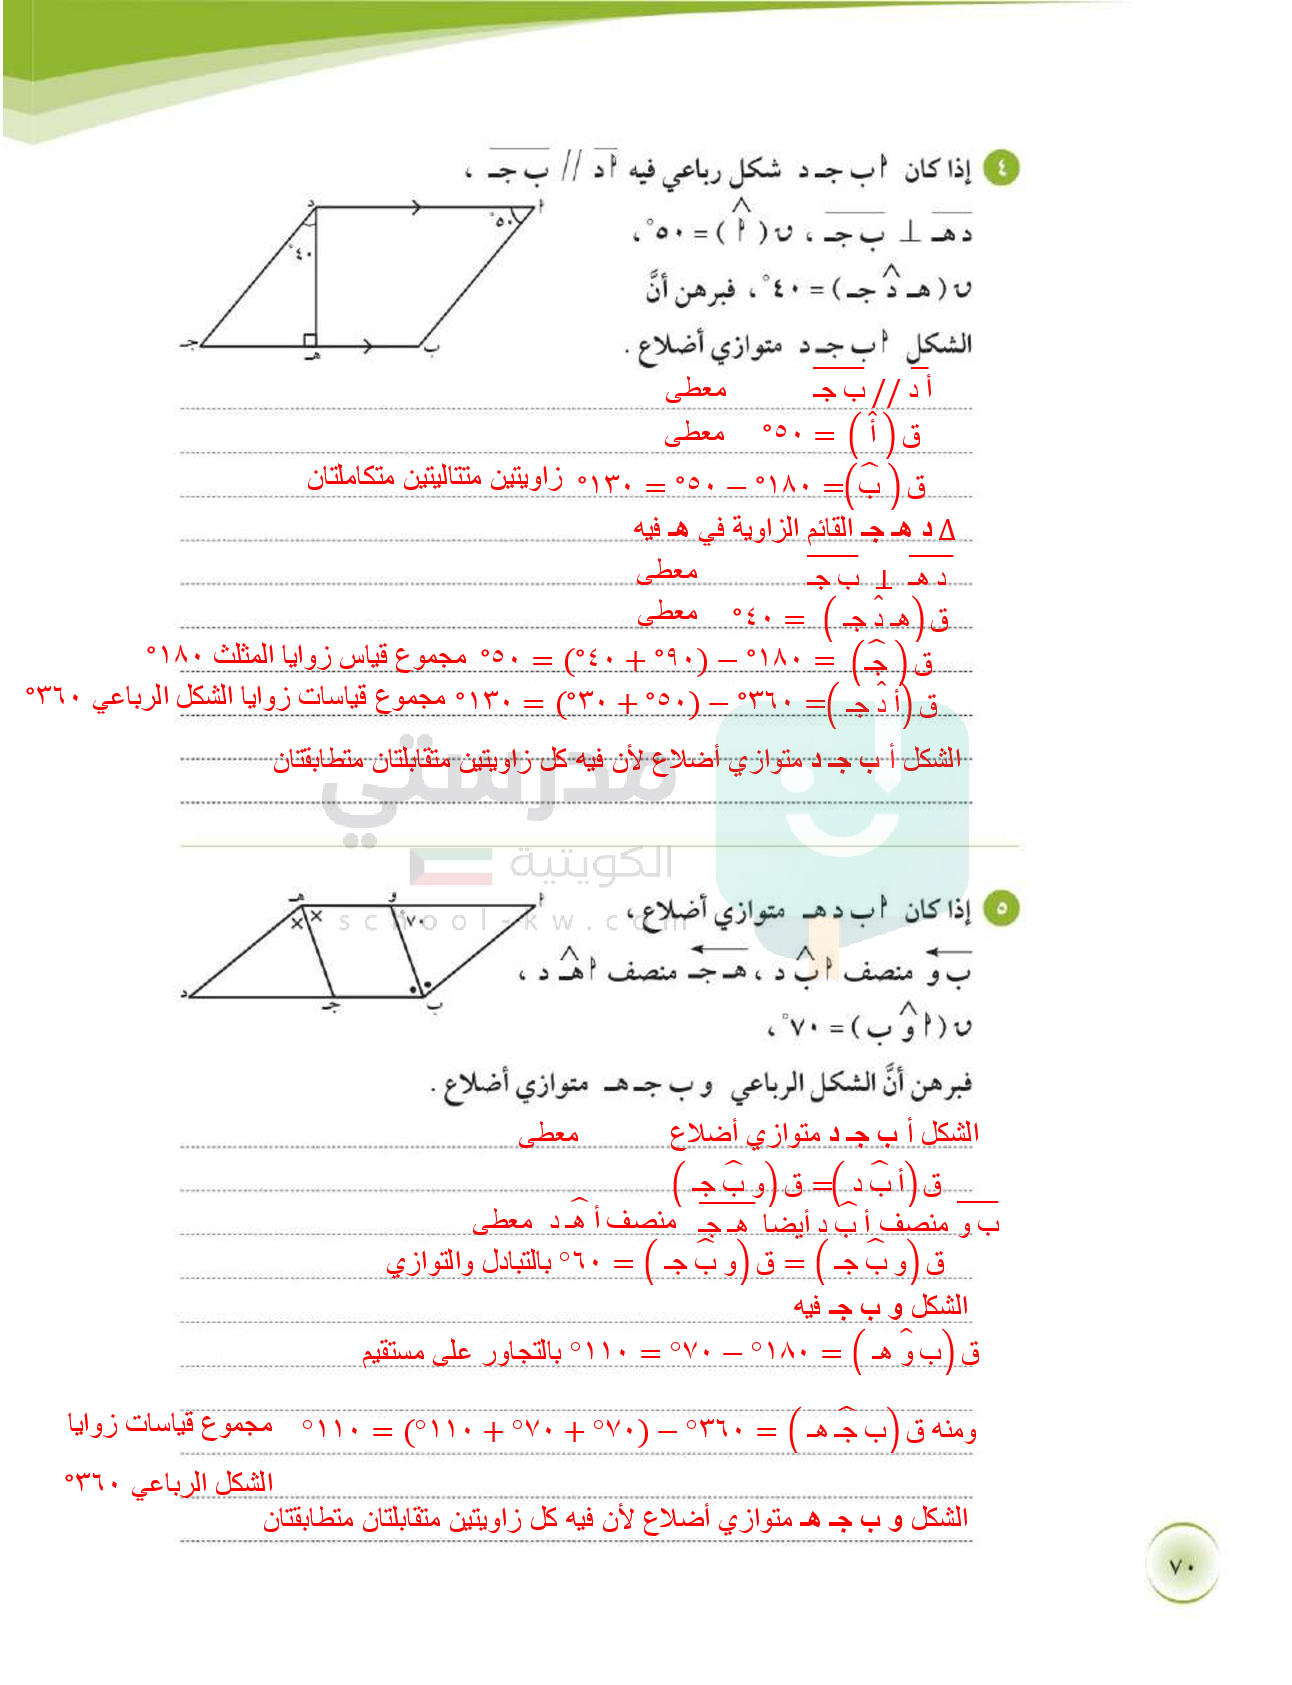 ٤ إذا كان أ ب جـ د شكل رباعي فيه أد // ب جـ ،
د هـ ⊥ ب جـ ، ن ( أ ) = ٥٠° ،
ن ( هـ د جـ ) = ٤٠° ، فبرهن أنَّ
الشكل أ ب جـ د متوازي أضلاع .
د
أ
٥٠°
٤٠°
جـ
هـ
ب
أ د // ب جـ معطى
ق ( أ ) = ٥٠° معطى
ق ( ب ) = ١٨٠° – ٥٠° = ١٣٠° زاويتين متتاليتين متكاملتان
Δ د هـ جـ القائم الزاوية في هـ فيه
د هـ ⊥ ب جـ معطى
ق ( هـ د جـ ) = ٤٠° معطى
ق ( جـ ) = ١٨٠° – (٩٠° + ٤٠°) = ٥٠° مجموع قياس زوايا المثلث ١٨٠°
ق ( أ د جـ ) = ٣٦٠° – (٥٠° + ٣٠°) = ١٣٠° مجموع قياسات زوايا الشكل الرباعي ٣٦٠°
الشكل أ ب جـ د متوازي أضلاع لأن فيه كل زاويتين متقابلتان متطابقتان
مدرستي
الكويتية
school-kw.com
٥ إذا كان أ ب د هـ متوازي أضلاع ،
ب و منصف أ ب د ، هـ جـ منصف أ هـ د ،
ن ( أ و ب ) = ٧٠° ،
فبرهن أنَّ الشكل الرباعي و ب جـ هـ متوازي أضلاع .
هـ
و
أ
٧٠
د
جـ
ب
الشكل أ ب جـ د متوازي أضلاع معطى
ق ( أ ب د ) = ق ( و ب جـ )
ب و منصف أ ب د أيضا هـ جـ منصف أ هـ د معطى
ق ( و ب جـ ) = ق ( و ب جـ ) = ٦٠° بالتبادل والتوازي
الشكل و ب جـ فيه
ق ( ب و هـ ) = ١٨٠° – ٧٠° = ١١٠° بالتجاور على مستقيم
ومنه ق ( ب جـ هـ ) = ٣٦٠° – (٧٠° + ٧٠° + ١١٠°) = ١١٠° مجموع قياسات زوايا
الشكل الرباعي ٣٦٠°
الشكل و ب جـ هـ متوازي أضلاع لأن فيه كل زاويتين متقابلتان متطابقتان
٧٠